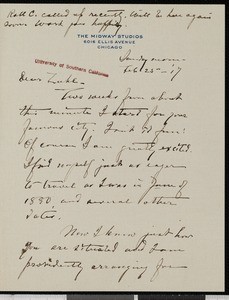 Kell C. called up recently. Will be here again
soon. Work goes happily.
THE MIDWAY STUDIOS
6016 ELLIS AVENUE
CHICAGO
University of Southern California
Sunday morn
Feb 25 - '17
Dear
Two weeks from about
this minute I start for your
famous city.
Of course I am greatly excited.
I find myself just as eager
to travel as I was in June of
1880, and several other
dates.
Now I know just how
you are situated and I am
providently arranging for